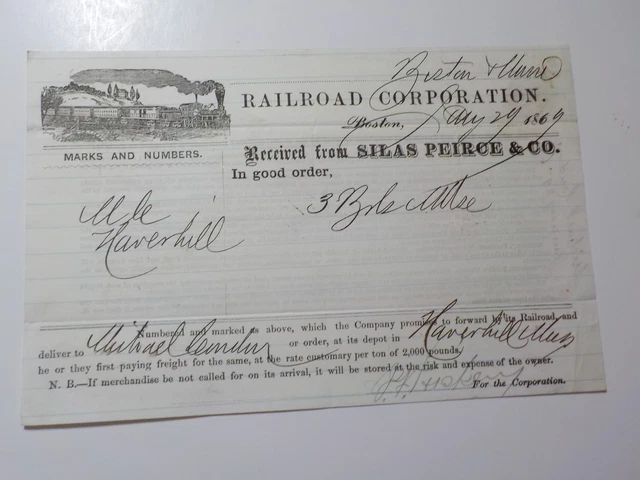 Boston & Maine
RAILROAD CORPORATION.
Boston, 29 1869
MARKS AND NUMBERS.
Received from SILAS PEIRCE & CO.
In good order,
3 Bbls
Haverhill
Numbered and marked as above, which the Company promises to forward by its Railroad, and
deliver to Michael or order, at its depot in Haverhill Mass
he or they first paying freight for the same, at the rate customary per ton of 2,000 pounds.
N. B.—If merchandise be not called for on its arrival, it will be stored at the risk and expense of the owner.
For the Corporation.